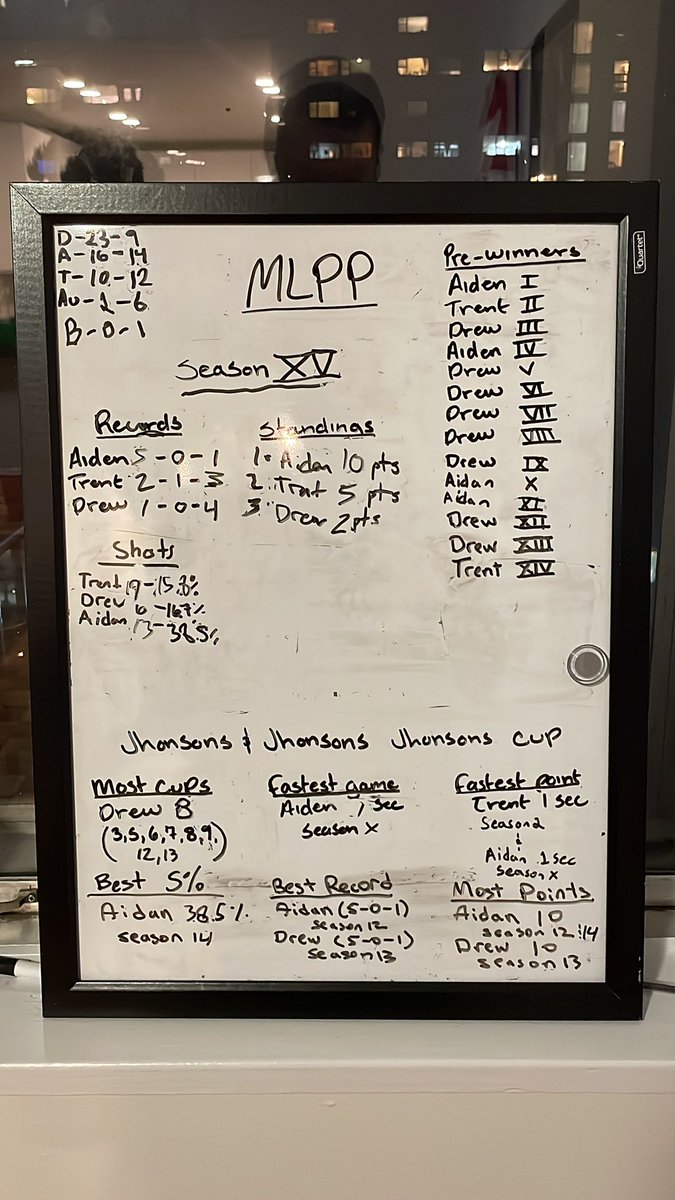 D-23-9
A-16-14
T-10-12
Au-1-6
B-0-1
MLPP
Season XV
Quartet
Pre-winners
Aiden I
Trent II
Drew III
Aiden IV
Drew V
Drew VI
Drew VII
Drew VIII
Drew IX
Aidan X
Aidan XI
Drew XII
Drew XIII
Trent XIV
Records
Aiden 5-0-1
Trent 2-1-3
Drew 1-0-4
Standings
1. Aidan 10 pts
2. Trent 5 pts
3. Drew 2pts
Shots
Trent 19-15.8%
Drew 6-16.7%
Aidan 13-38.5%
Jhonsons & Jhonsons Jhonsons cup
Most cups
Drew 8
(3,5,6,7,8,9,
12,13)
Fastest game
Aiden 7 sec
season X
Fastest point
Trent 1 sec
Season 2
Aidan 1sec
season X
Best S%
Aidan 38.5%
season 14
Best Record
Aidan (5-0-1)
season 12
Drew (5-0-1)
season 13
Most Points
Aidan 10
season 12 14
Drew 10
season 13